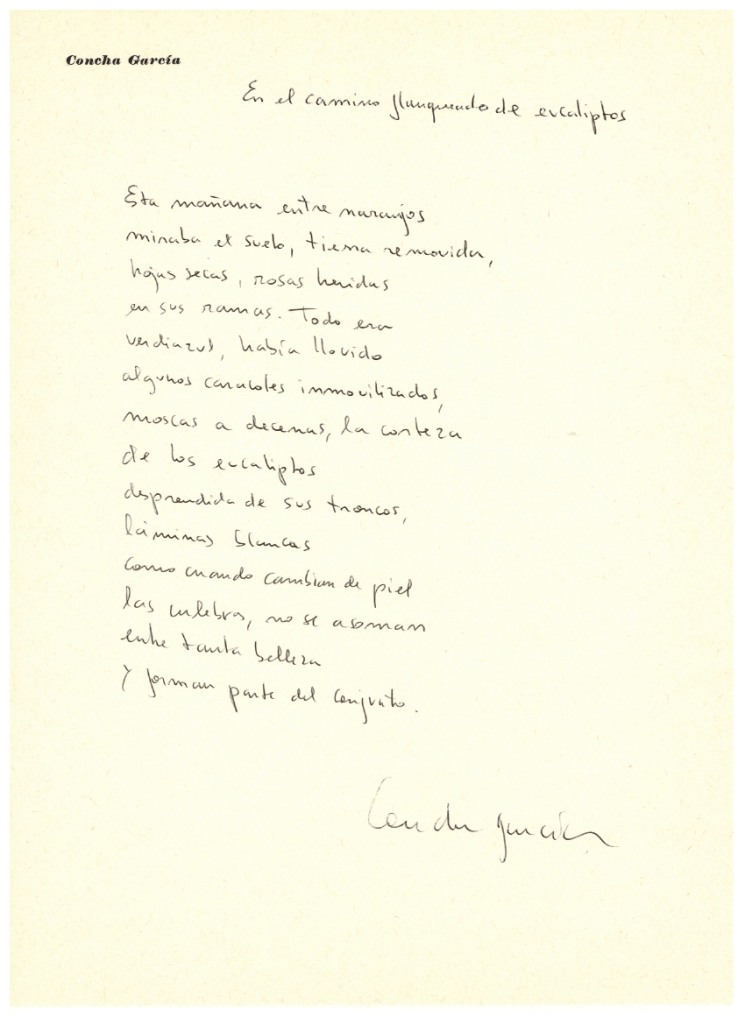 Concha García
En el camino flanqueado de eucaliptos
Esta mañana entre naranjos
miraba el suelo, tierra removida,
hojas secas, rosas heridas
en sus ramas. Todo era
verdiazul, había llovido
algunos caracoles inmovilizados,
moscas a decenas, la corteza
de los eucaliptos
desprendida de sus troncos,
láminas blancas
como cuando cambian de piel
las culebras, no se asoman
entre tanta belleza
y forman parte del conjunto.
Concha García